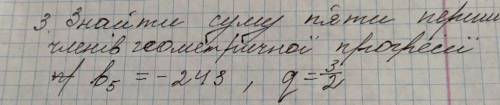 3. Знайти суму п'яти перши
членів геометричної прогресії
b₅ = -243, q = 3/2